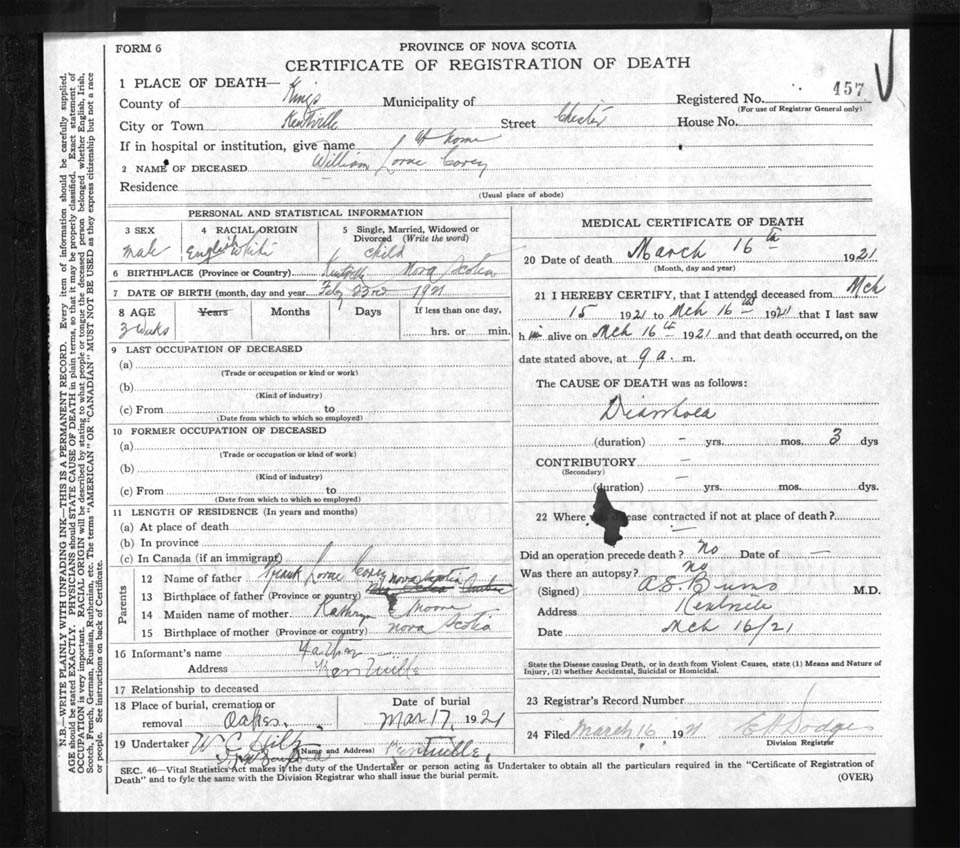 FORM 6
PROVINCE OF NOVA SCOTIA
CERTIFICATE OF REGISTRATION OF DEATH
1 PLACE OF DEATH—
County of Kings Municipality of Registered No. 457
(For use of Registrar General only)
City or Town Kentville Street Chester House No.
If in hospital or institution, give name At home
2 NAME OF DECEASED William Lorne Corey
Residence
(Usual place of abode)
PERSONAL AND STATISTICAL INFORMATION
3 SEX 4 RACIAL ORIGIN 5 Single, Married, Widowed or Divorced (Write the word)
male English White child
6 BIRTHPLACE (Province or Country) Kentville Nova Scotia
7 DATE OF BIRTH (month, day and year Feby 23rd 1921
8 AGE Years Months Days If less than one day,
3 weeks hrs. or min.
9 LAST OCCUPATION OF DECEASED
(a)
(Trade or occupation or kind or work)
(b)
(Kind of industry)
(c) From to
(Date from which to which so employed)
10 FORMER OCCUPATION OF DECEASED
(a)
(Trade or occupation or kind of work)
(b)
(Kind of industry)
(c) From to
(Date from which to which so employed)
11 LENGTH OF RESIDENCE (In years and months)
(a) At place of death
(b) In province
(c) In Canada (if an immigrant)
Parents
12 Name of father Frank Lorne Corey
13 Birthplace of father (Province or country) Nova Scotia
14 Maiden name of mother Kathryn E Moore
15 Birthplace of mother (Province or country) Nova Scotia
16 Informant's name Father
Address Kentville
17 Relationship to deceased
18 Place of burial, cremation or Date of burial
removal Oaks. Mar 17, 1921
19 Undertaker W C (Name and Address) Kentville
MEDICAL CERTIFICATE OF DEATH
20 Date of death March 16th 1921
(Month, day and year)
21 I HEREBY CERTIFY, that I attended deceased from Mch
15 1921 to Mch 16th 1921 that I last saw
h im alive on Mch 16th 1921 and that death occurred, on the
date stated above, at 9 a. m.
The CAUSE OF DEATH was as follows:
Diarrhoea
(duration) - yrs. mos. 3 dys
CONTRIBUTORY -
(Secondary)
(duration) - yrs. mos. dys.
22 Where disease contracted if not at place of death? —
Did an operation precede death? no Date of —
Was there an autopsy? no
(Signed) A.S. Burns M.D.
Address Kentville
Date Mch 16/21
State the Disease causing Death, or in death from Violent Causes, state (1) Means and Nature of
Injury, (2) whether Accidental, Suicidal or Homicidal.
23 Registrar's Record Number
24 Filed March 16 1921 E H Dodge
Division Registrar
SEC. 46—Vital Statistics Act makes it the duty of the Undertaker or person acting as Undertaker to obtain all the particulars required in the "Certificate of Registration of
Death" and to fyle the same with the Division Registrar who shall issue the burial permit.
(OVER)
N.B.—WRITE PLAINLY WITH UNFADING INK—THIS IS A PERMANENT RECORD. Every item of information should be carefully supplied.
AGE should be stated EXACTLY. PHYSICIANS should STATE CAUSE OF DEATH in plain terms, so that it may be properly classified. Exact statement of
OCCUPATION is very important. RACIAL ORIGIN will be described by stating to what people or tongue the deceased person belonged whether English, Irish,
Scotch, French, German, Russian, Ruthenian, etc. The terms "AMERICAN" OR "CANADIAN" MUST NOT BE USED as they express citizenship but not a race
or people. See instructions on back of Certificate.